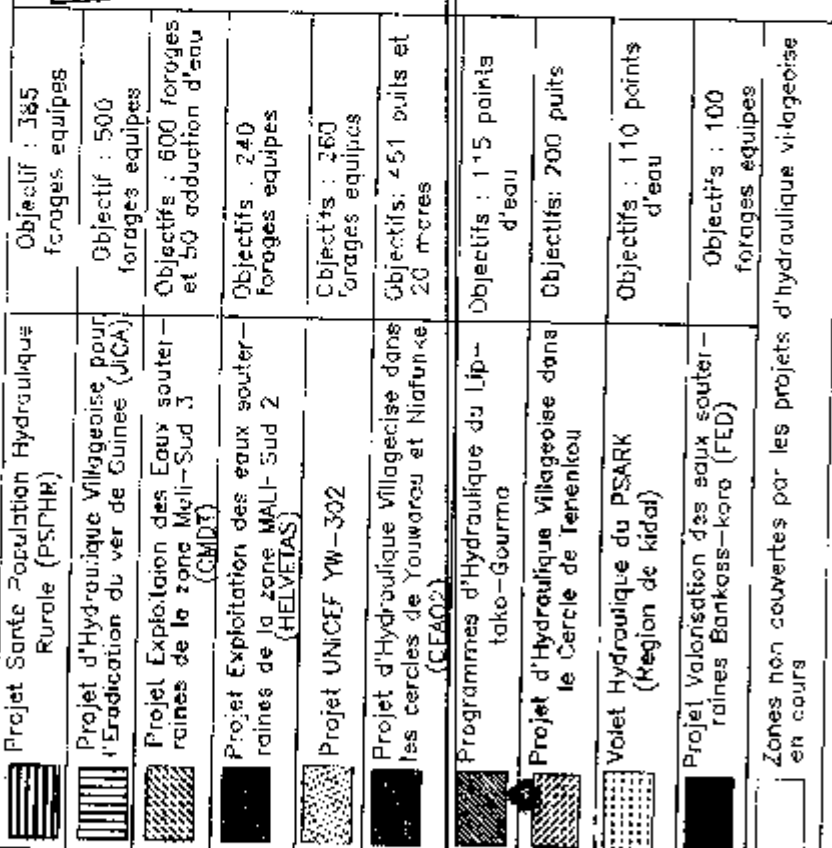 Projet Sante Population Hydraulique
Rurale (PSPHR)
Objectif : 385
forages equipes
Projet d'Hydraulique Villageoise pour
l'Eradication du ver de Guinee (JICA)
Objectif : 500
forages equipes
Projet Exploitaion des Eaux souter-
raines de la zone Mali-Sud 3
(CMDT)
Objectifs : 600 forages
et 50 adduction d'eau
Projet Exploitation des eaux souter-
raines de la zone MALI- Sud 2
(HELVETAS)
Objectifs : 240
forages equipes
Projet UNICEF YW-302
Objectifs : 260
forages equipes
Projet d'Hydraulique Villageoise dans
les cercles de Youwarou et Niafunke
(CEAO2)
Objectifs: 451 puits et
20 mares
Programmes d'Hydraulique du Lip-
tako-Gourma
Objectifs : 115 points
d'eau
Projet d'Hydraulique Villageoise dans
le Cercle de Tenenkou
Objectifs: 200 puits
Volet Hydraulique du PSARK
(Region de kidal)
Objectifs : 110 points
d'eau
Projet Valorisation des eaux souter-
raines Bankass-koro (FED)
Objectifs : 100
forages equipes
Zones non couvertes par les projets d'hydraulique villageoise
en cours